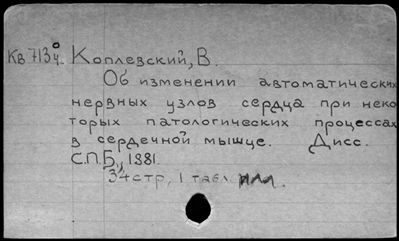 Кв 713⁰4. Коплевский, В.
Об изменении автоматических
нервных узлов сердца при неко
торых патологических процессах
в сердечной мышце. Дисс.
С.П.Б., 1881.
34 стр, 1 табл илл.